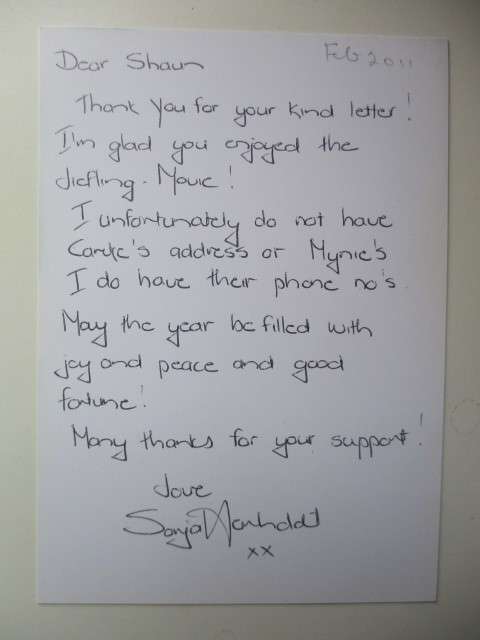 Dear Shaun
Feb 2011
Thank you for your kind letter!
I'm glad you enjoyed the
Movie!
I unfortunately do not have
address or Mynie's
I do have their phone no's
May the year be filled with
joy and peace and good
fortune!
Many thanks for your support!
Love
Sonja
xx